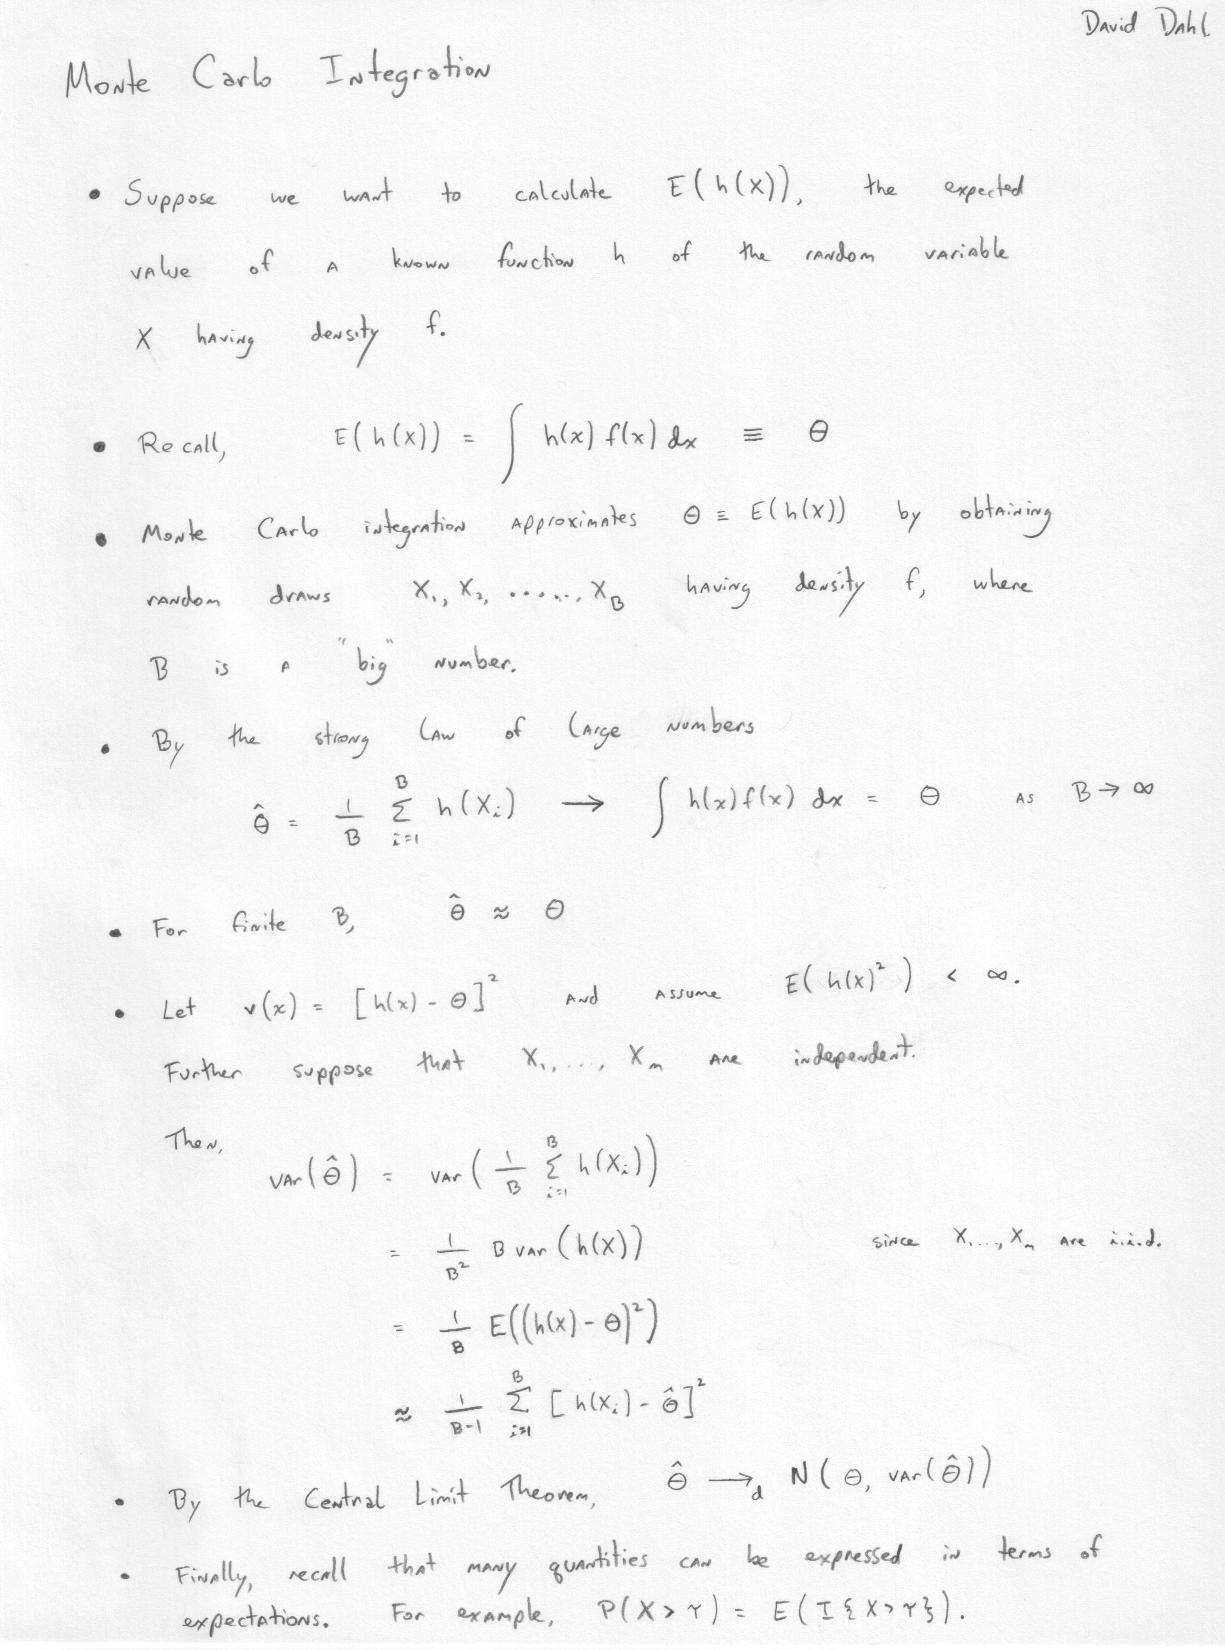 David Dahl
Monte Carlo Integration
• Suppose we want to calculate E(h(X)), the expected
value of a known function h of the random variable
X having density f.
• Recall, E(h(X)) = ∫ h(x) f(x) dx ≡ θ
• Monte Carlo integration approximates θ ≡ E(h(X)) by obtaining
random draws X₁, X₂, ......, X_B having density f, where
B is a "big" number.
• By the strong law of large numbers
θ̂ = 1/B Σ_{i=1}^{B} h(X_i) → ∫ h(x) f(x) dx = θ as B → ∞
• For finite B, θ̂ ≈ θ
• Let v(x) = [h(x) - θ]² and assume E(h(X)²) < ∞.
Further suppose that X₁, ..., X_m are independent.
Then,
var(θ̂) = var(1/B Σ_{i=1}^{B} h(X_i))
= 1/B² B var(h(X)) since X, ..., X_m are i.i.d.
= 1/B E((h(X) - θ)²)
≈ 1/(B-1) Σ_{i=1}^{B} [h(X_i) - θ̂]²
• By the Central Limit Theorem, θ̂ →_d N(θ, var(θ̂))
• Finally, recall that many quantities can be expressed in terms of
expectations. For example, P(X > Y) = E(I{X > Y}).